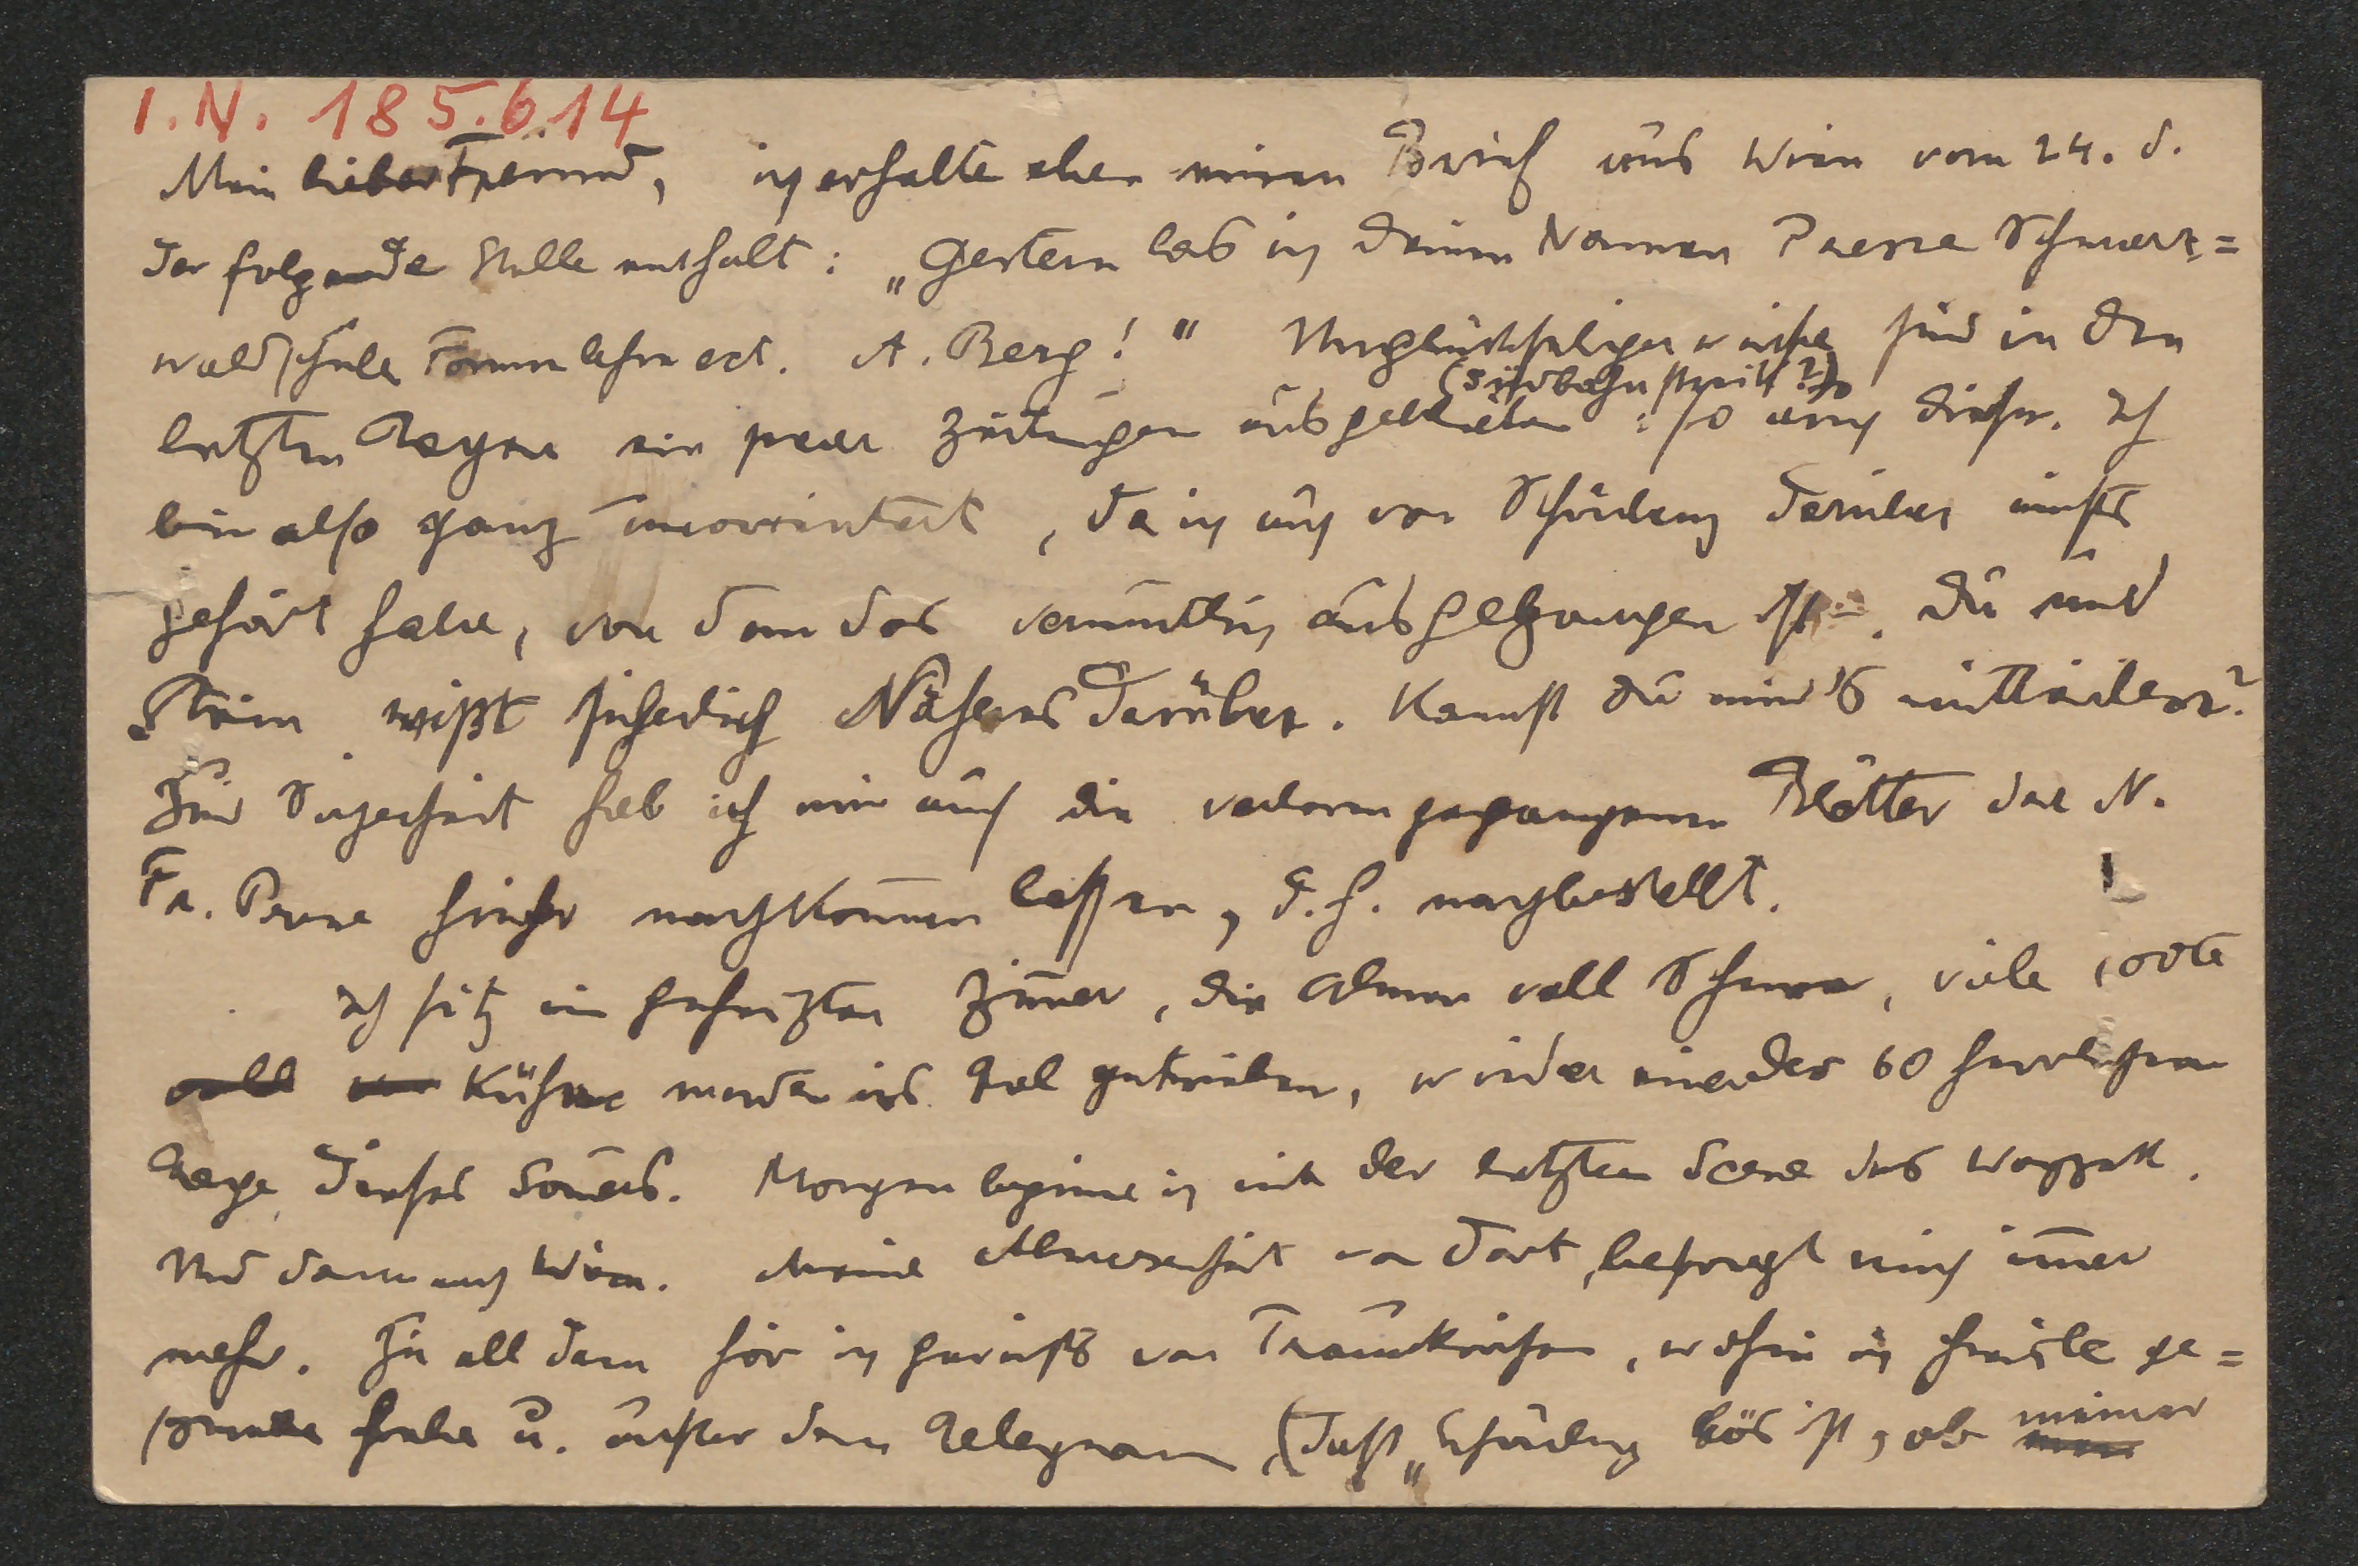 I.N. 185.614
Mein lieber Freund, ich erhalte eben einen Brief aus Wien vom 24. d.
der folgende Stelle enthält: „Gestern las ich Deinen Namen Presse Schwarz=
waldschule Formenlehre ect. A. Berg!" Unglückseligerweise sind in den
(Südbahnstreik?)
letzten Tagen ein paar Zeitungen ausgeblieben: so auch diese. Ich
bin also ganz unorientiert, da ich auch von Schönberg darüber nichts
gehört habe, von dem das vermutlich ausgegangen ist. Du und
Stein wißt sicherlich Näheres darüber. Kannst Du mir's mitteilen?
Zur Sicherheit hab ich mir auch die verloren gegangenen Blätter der N.
Fr. Presse hierher nachkommen lassen, d.h. nachbestellt.
Ich sitz im geheizten Zimmer, die Almen voll Schnee, viele tote
Kühe werden ins Tal getrieben, wieder einer der 60 herrlichen
Tage dieses Somers. Morgen beginne ich mit der letzten Scene des Wozzek.
Und dann nach Wien. Meine Abwesenheit von dort besorgt mich immer
mehr. Zu all dem hör ich garnichts von Traunkirchen, wohin ich heute ge=
schrieben habe u. außer dem Telegram (dass „Schönberg bös ist, ob meiner